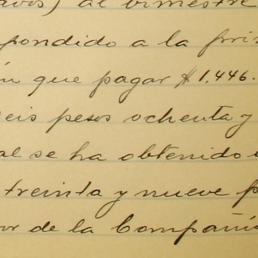 avos) al bimestre
pondido a la pri
ón que pagar $1.446.
eis pesos ochenta y
al se ha obtenido
treinta y nueve p
or de la Compañía